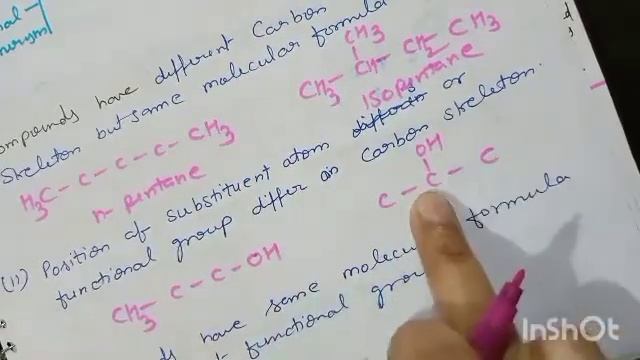 compounds have different Carbon
skeleton but same molecular formula
CH3
CH3 - CH - CH2 - CH3
isopentane
H3C - C - C - C - CH3
n-pentane
(ii) Position of substituent atom or
functional group differ in carbon skeleton.
OH
C - C - C
CH3 - C - C - OH
have same molecular formula
functional group
InShOt